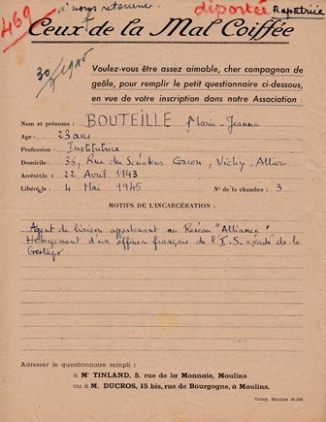 469
à nous retourner
déportée Rapatriée
Ceux de la Mal Coiffée
Voulez-vous être assez aimable, cher compagnon de
geôle, pour remplir le petit questionnaire ci-dessous,
en vue de votre inscription dans notre Association :
Nom et prénoms : BOUTEILLE Marie-Jeanne
Age : 23 ans
Profession : Institutrice
Domicile : 35, Rue du Sénateur Gacon, Vichy, Allier
Arrêté le : 22 Avril 1943
Libéré le : 4 Mai 1945 N° de la chambre : 3
MOTIFS DE L'INCARCÉRATION :
Agent de liaison appartenant au Réseau "Alliance"
Hébergement d'un officier français de l'I.S. évadé de la
Gestapo
Adresser le questionnaire rempli :
à Mr TINLAND, 5, rue de la Monnaie, Moulins
ou à M. DUCROS, 15 bis, rue de Bourgogne, à Moulins.